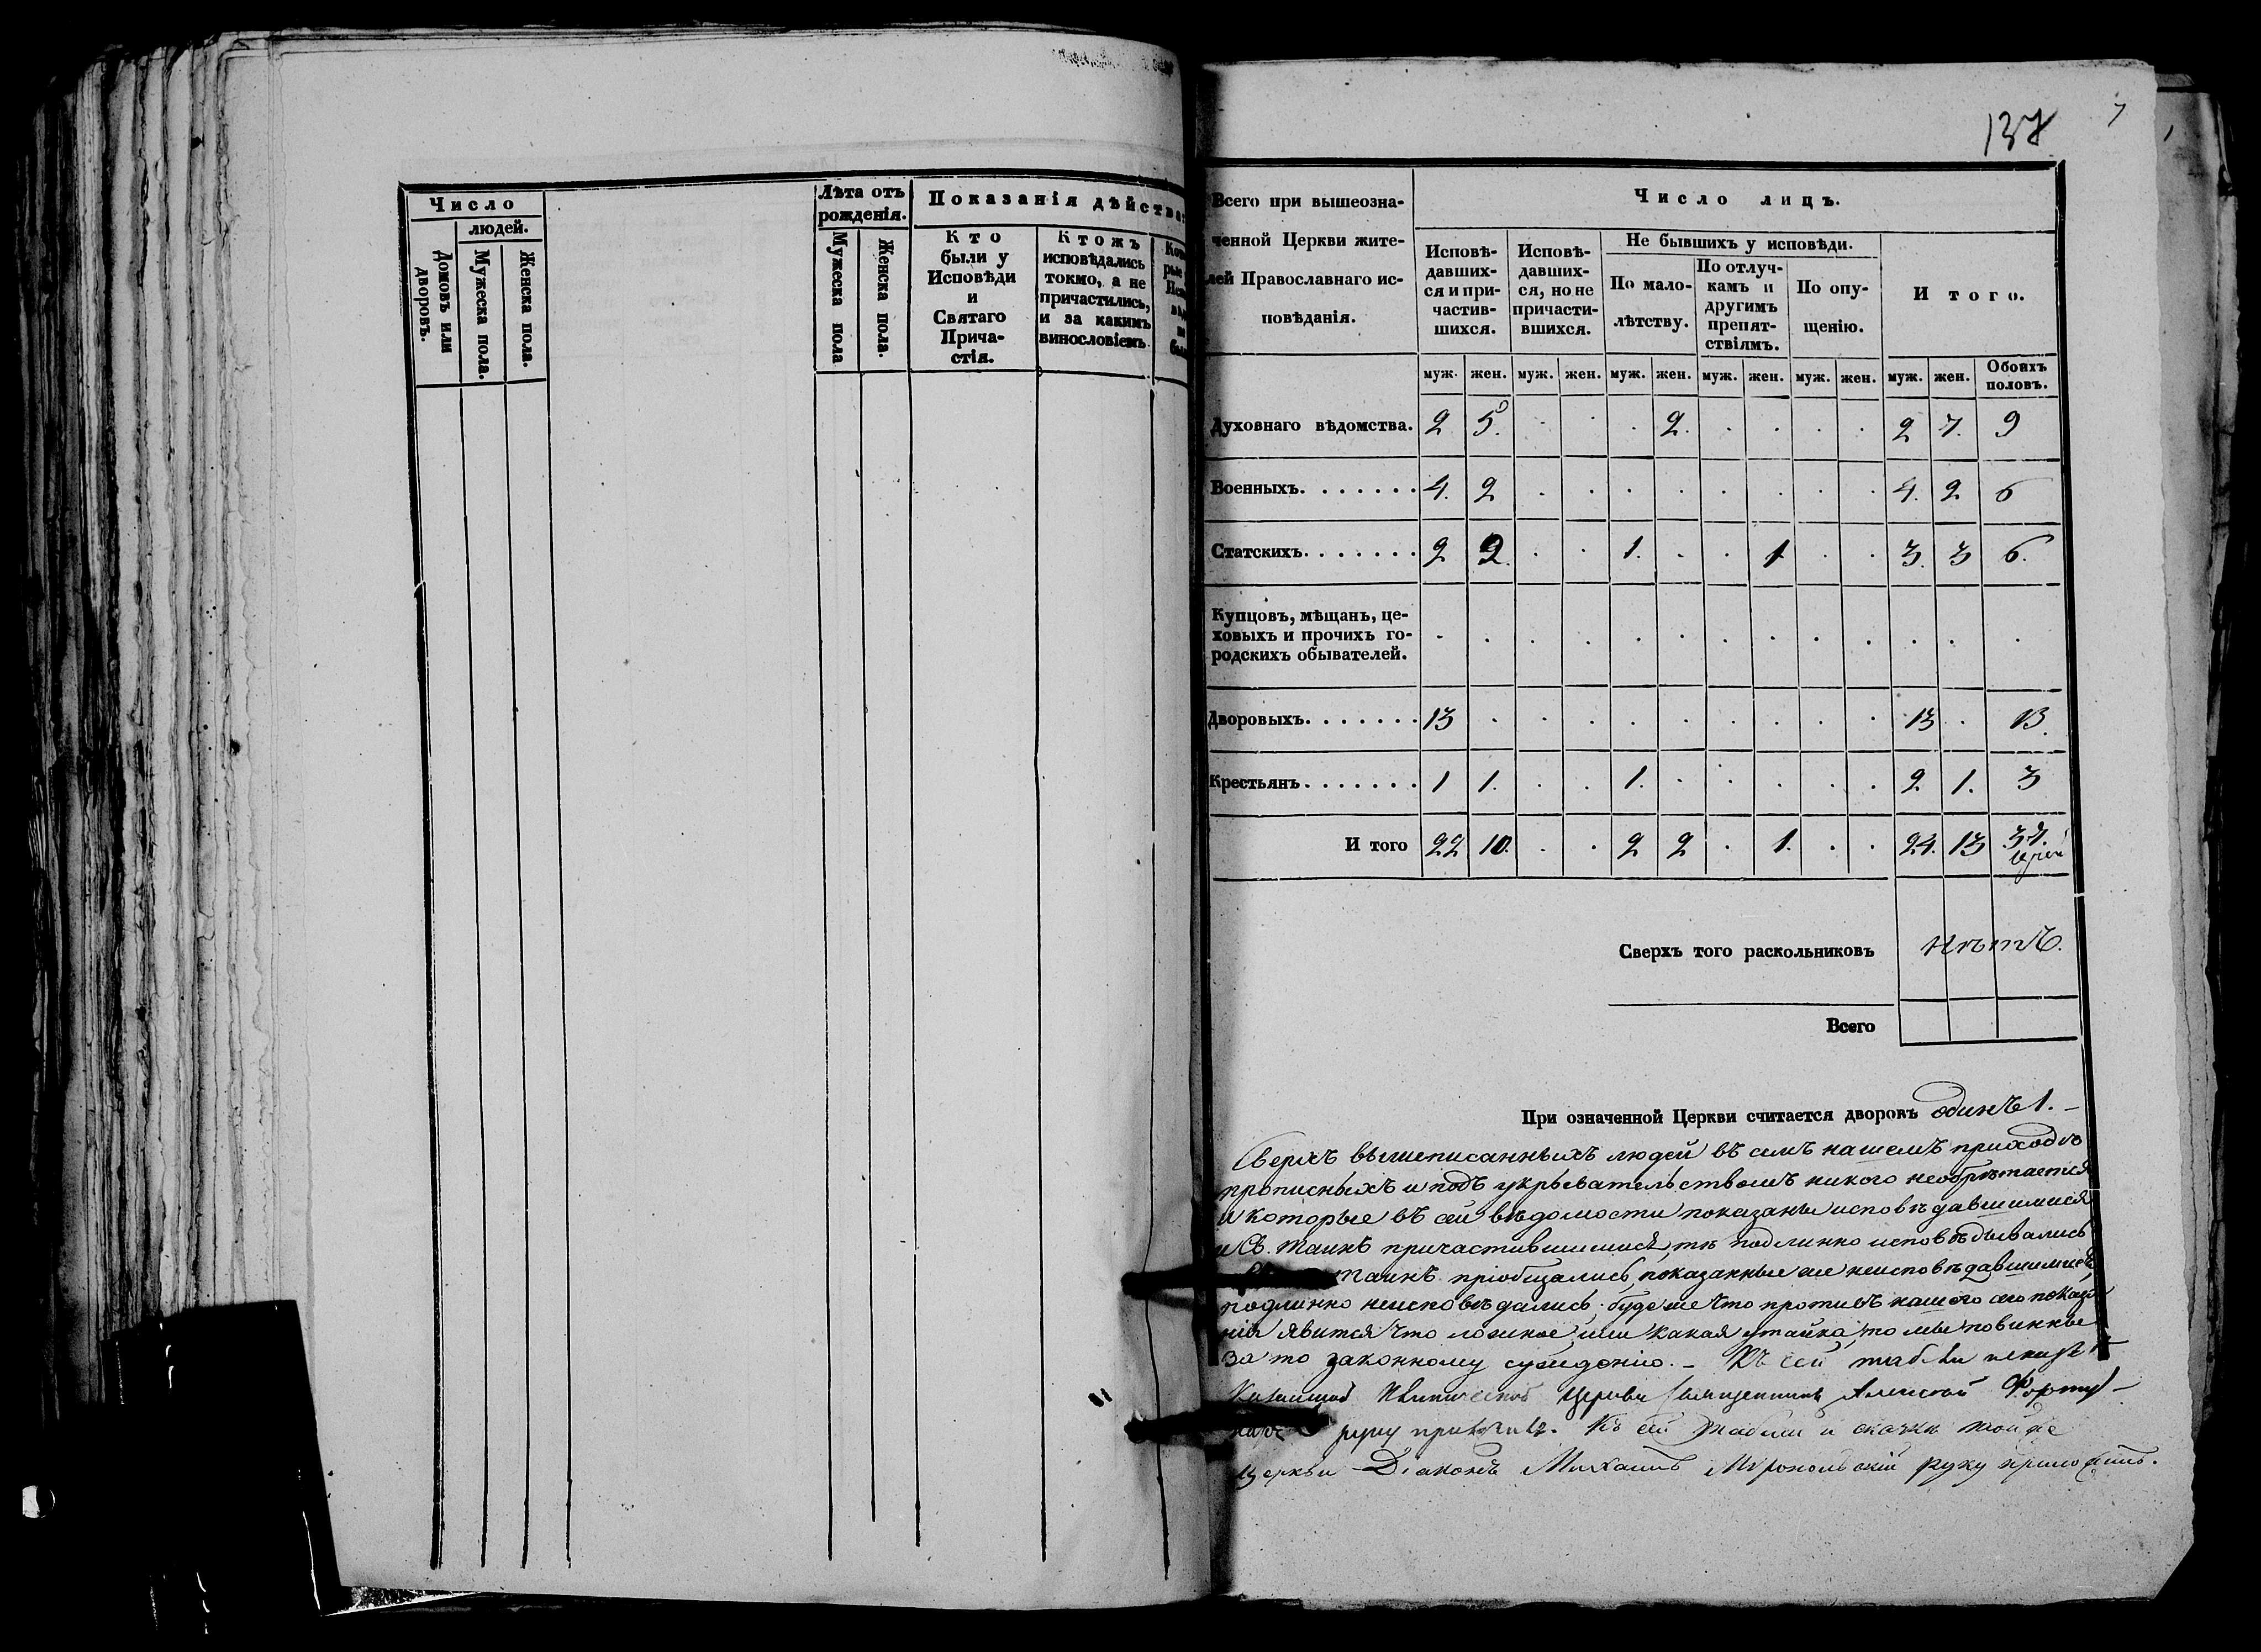 Число
людей.
Домовъ или дворовъ.
Мужеска пола.
Женска пола.
Лѣта отъ рожденія.
Мужеска пола
Женска пола.
Показанія дѣйства
Кто
были у
Исповѣди
и
Святаго
Прича-
стія.
Ктожъ
исповѣдались
токмо, а не
причастились,
и за какимъ
винословіемъ
137
Всего при вышеозна-
ченной Церкви жите-
лей Православнаго ис-
повѣданія.
Число лицъ.
Исповѣ-
давших-
ся и при-
частив-
шихся.
Исповѣ-
давших-
ся, но не
причасти-
вшихся.
Не бывшихъ у исповѣди.
По мало-
лѣтству.
По отлуч-
камъ и
другимъ
препят-
ствіямъ.
По опу-
щенію.
Итого.
муж. жен. муж. жен. муж. жен. муж. жен. муж. жен. муж. жен. Обоихъ половъ.
Духовнаго вѣдомства. 2 5. . . . 2. . . . . 2 7. 9
Военныхъ. . . . . . . 4. 2 . . . . . . . . 4. 2 6
Статскихъ. . . . . . . 2 2. . . 1. . . 1 . . 3. 3 6.
Купцовъ, мѣщанъ, це-
ховыхъ и прочихъ го-
родскихъ обывателей. . . . . . . . . . . . . .
Дворовыхъ. . . . . . . 13 . . . . . . . . . 13 . 13.
Крестьянъ. . . . . . . 1 1. . . 1. . . . . . 2 1. 3
И того 22 10. . . 2 2 . 1. . . 24. 13 37.
Сверхъ того раскольниковъ нѣтъ.
Всего
При означенной Церкви считается дворовъ одинъ 1. –
Сверхъ вышеписанныхъ людей въ семъ нашемъ приходѣ
прописныхъ и подъ укрывательствомъ никого необрѣтается
и которые въ сей вѣдомости показаны исповѣдавшимися
и Св. Таинъ причастившимися, тѣ подлинно исповѣдывались
Таинъ пріобщались, показанные же неисповѣдавшимися,
подлинно неисповѣдались. буде же что противъ нашего сего показа
нія явится что ложное, или какая утайка, то мы повинны
за то законному сужденію. – Къ сей табели
церкви Священникъ Алексѣй
руку приложилъ. Къ сей табели и сказкѣ тойже
церкви Діаконъ Михаилъ руку приложилъ.